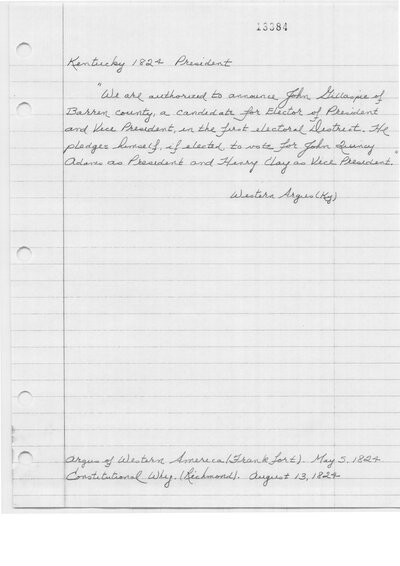 13384
Kentucky 1824 President
"We are authorized to announce John Gillaspie of
Barren county, a candidate for Elector of President
and Vice President, in the first electoral District. He
pledges himself, if elected, to vote for John Quincy
Adams as President and Henry Clay as Vice President."
Western Argus (Ky)
Argus of Western America (Frankfort). May 5, 1824
Constitutional Whig. (Richmond). August 13, 1824